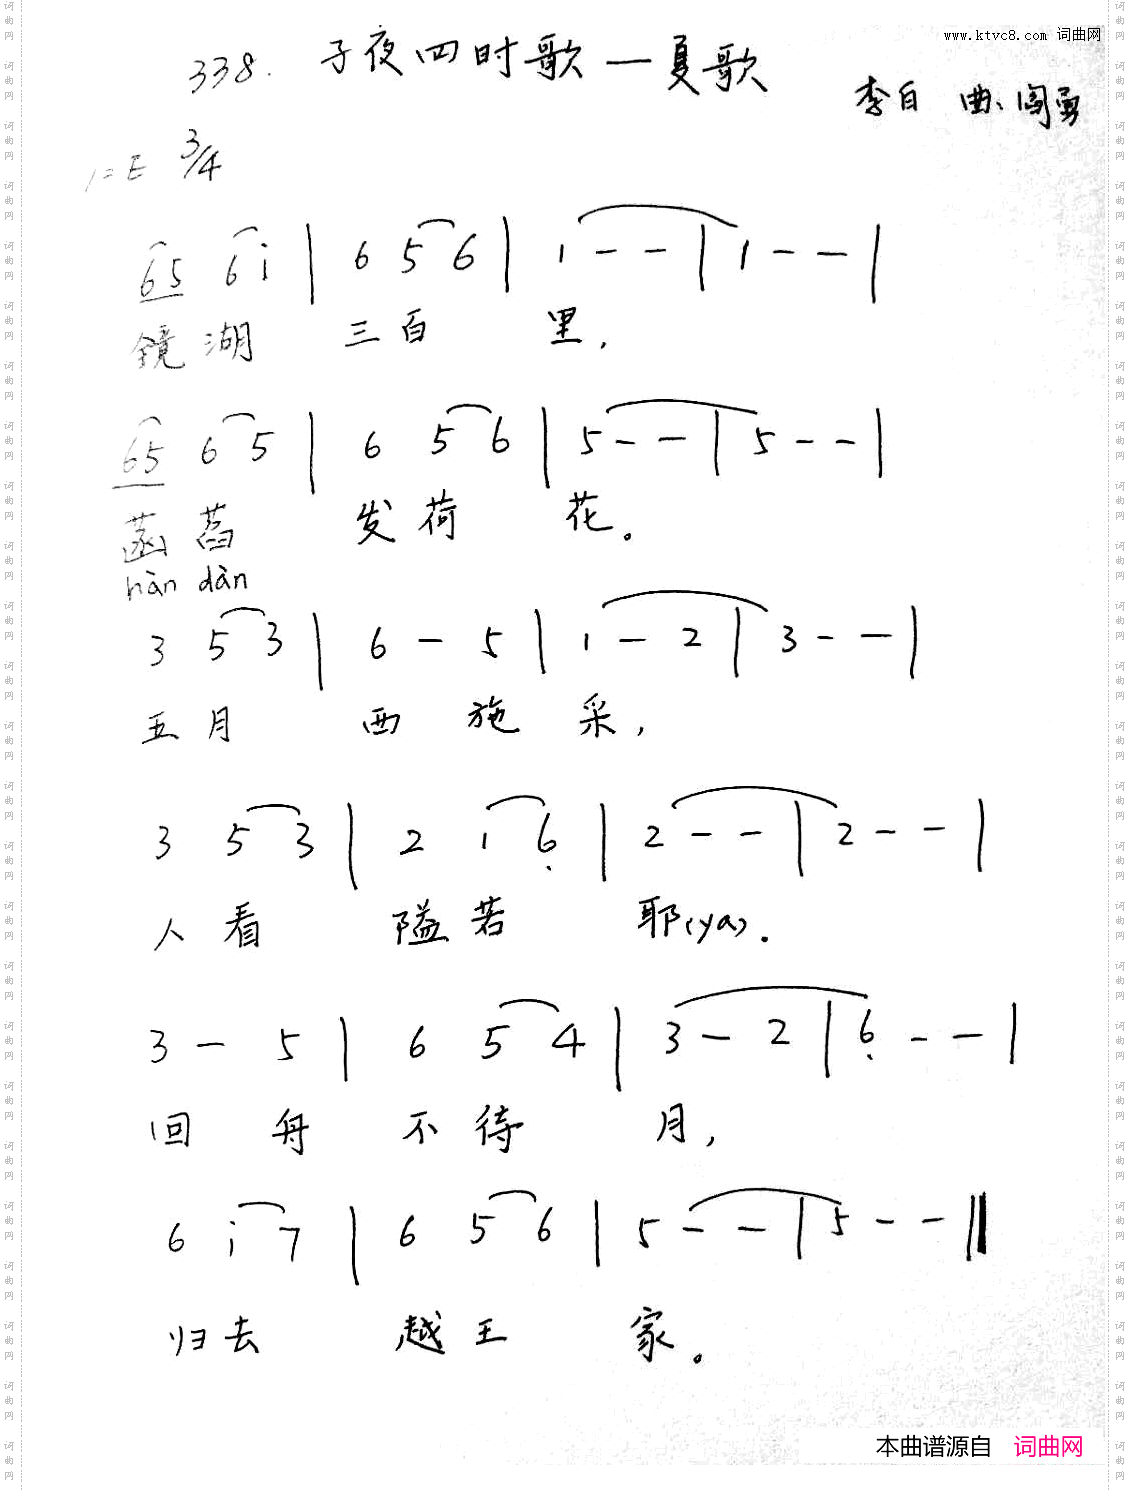 www.ktvc8.com 词曲网
338. 子夜四时歌—夏歌
李白 曲:阎勇
1=E 3/4
65 6i | 6 5 6 | 1 - - | 1 - - |
镜湖 三百 里,
65 6 5 | 6 5 6 | 5 - - | 5 - - |
菡萏 发荷 花。
hàn dàn
3 5 3 | 6 - 5 | 1 - 2 | 3 - - |
五月 西施 采,
3 5 3 | 2 1 6̣ | 2 - - | 2 - - |
人看 隘若 耶(ya).
3 - 5 | 6 5 4 | 3 - 2 | 6̣ - - |
回舟 不待 月,
6 i 7 | 6 5 6 | 5 - - | 5 - - ‖
归去 越王 家。
本曲谱源自 词曲网